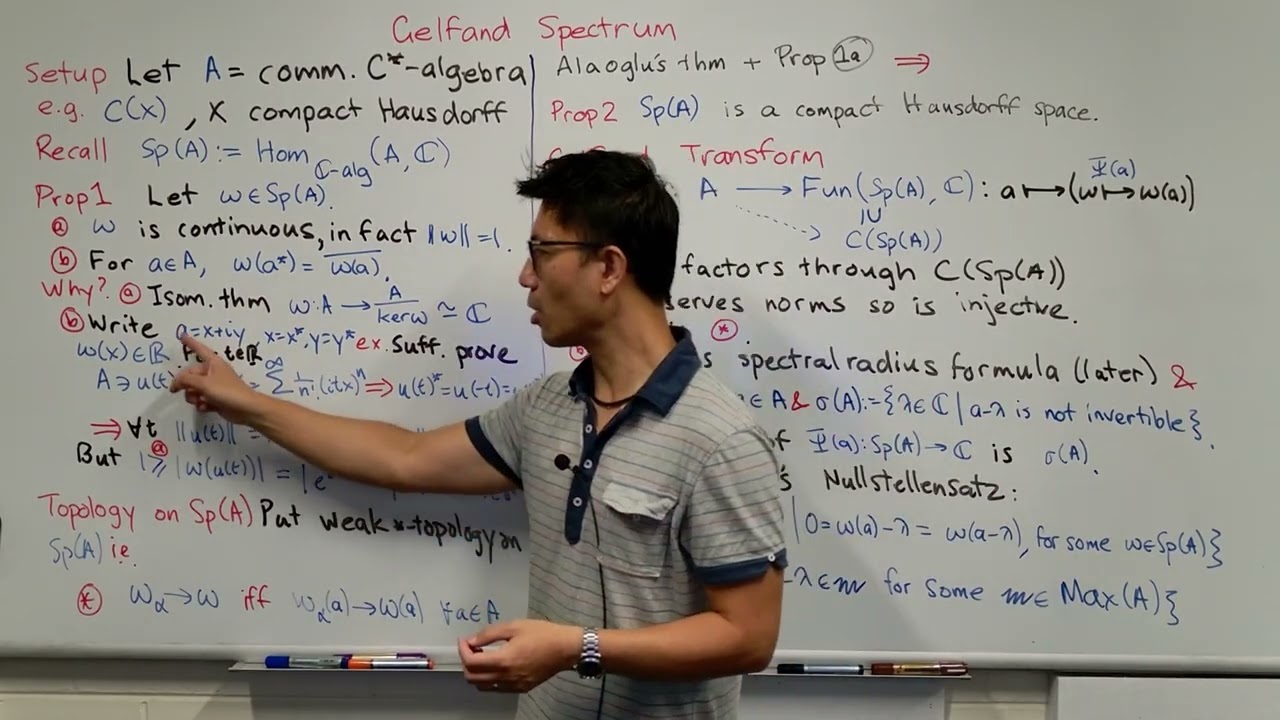 Gelfand Spectrum
Setup Let A = comm. C*-algebra
e.g. C(X), X compact Hausdorff
Recall Sp(A) := Hom_{ℂ-alg}(A, ℂ)
Prop1 Let ω∈Sp(A).
ⓐ ω is continuous, in fact ‖ω‖=1.
ⓑ For a∈A, ω(a*) = \overline{ω(a)}.
Why? ⓐ Isom. thm ω: A → A/kerω ≃ ℂ
ⓑ Write a=x+iy, x=x*, y=y* ex. Suff. prove
ω(x)∈ℝ t∈ℝ
A∋u(t) = Σ^∞ 1/n! (itx)^n ⇒ u(t)*=u(-t)=
⇒ ∀t ‖u(t)‖ =
But 1 ≥ⓐ |ω(u(t))| = |e
Topology on Sp(A) Put weak *-topology on
Sp(A) i.e.
⊛ ω_α→ω iff ω_α(a)→ω(a) ∀a∈A
Alaoglu's thm + Prop 1a ⇒
Prop2 Sp(A) is a compact Hausdorff space.
Transform
A → Fun(Sp(A), ℂ): a↦(ω ↦^{Ψ(a)} ω(a))
∪|
C(Sp(A))
factors through C(Sp(A))
serves norms so is injective.
⊛
spectral radius formula (later) &
∈A & σ(A):={λ∈ℂ | a-λ is not invertible}.
Ψ(a): Sp(A)→ℂ is σ(A).
's Nullstellensatz:
| 0=ω(a)-λ = ω(a-λ), for some ω∈Sp(A)}
-λ∈m for some m∈Max(A)}